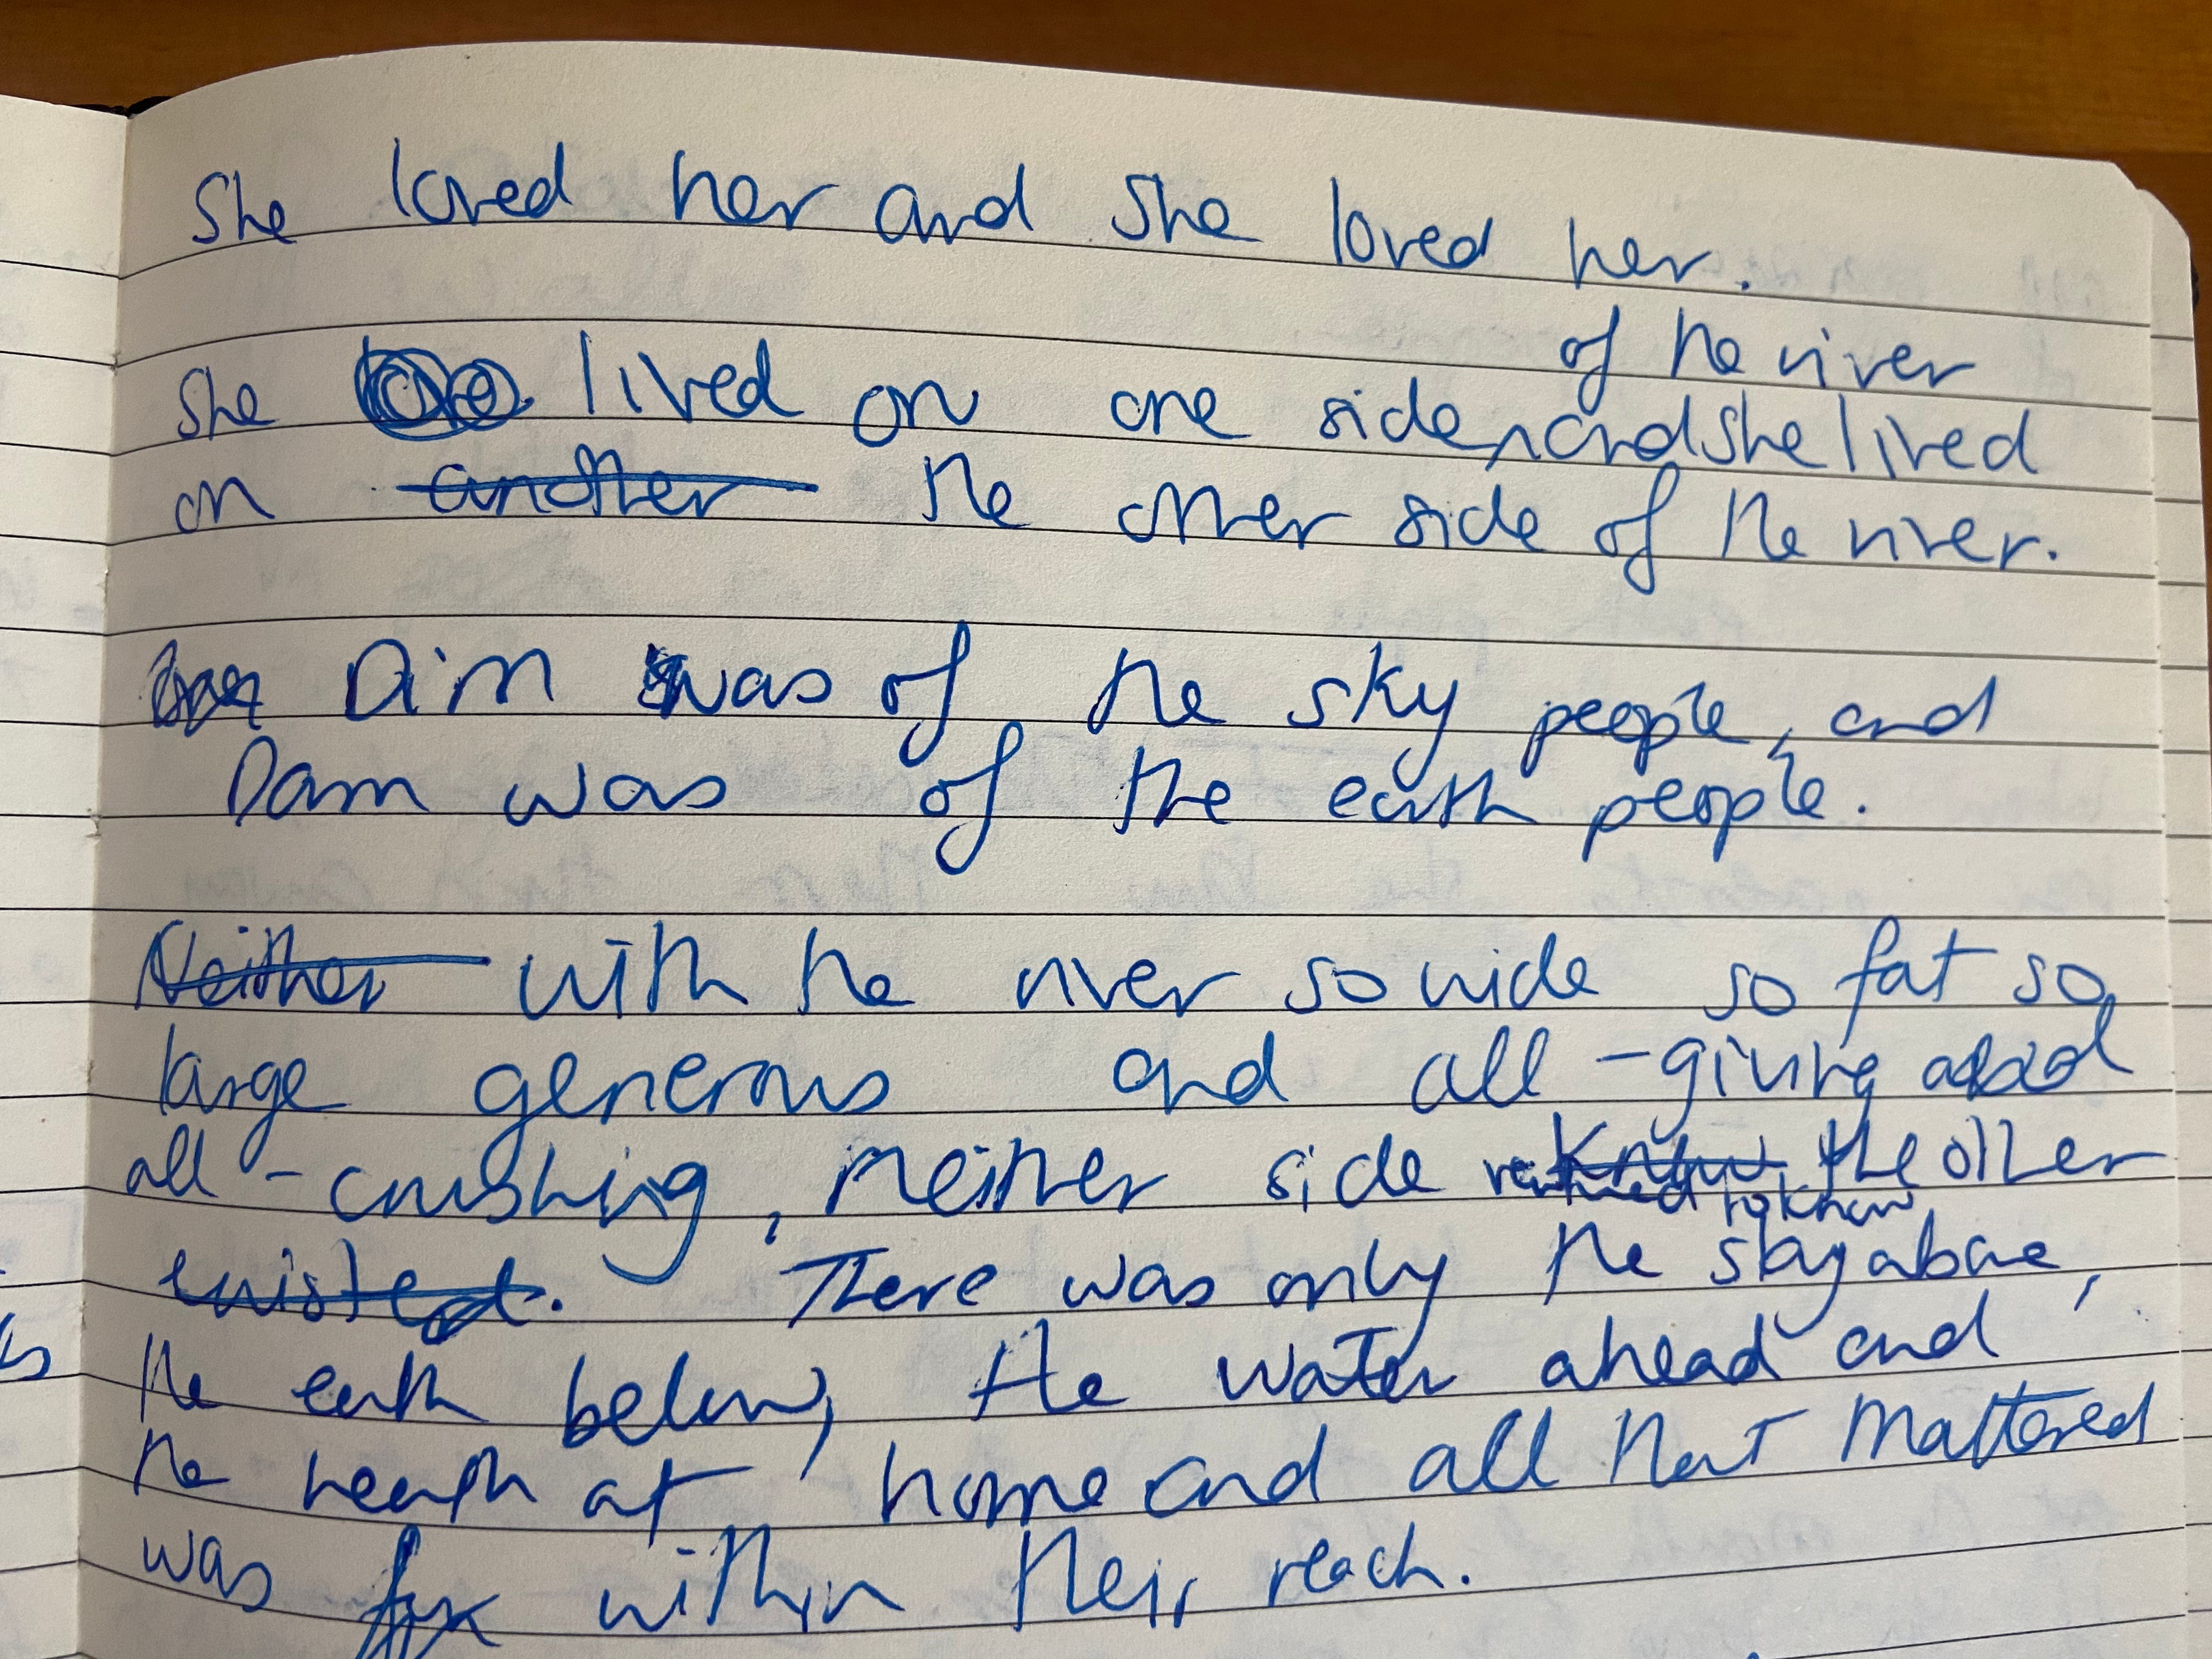 She loved her and she loved her.
of the river
She lived on one side and she lived
on another the other side of the river.
Dim was of the sky people, and
Dam was of the earth people.
Neither with the river so wide so fat so
large generous and all-giving and
all-crushing, neither side know the other
to know
existed. There was only the sky above,
the earth below, the water ahead and
the hearth at home and all that mattered
was within their reach.